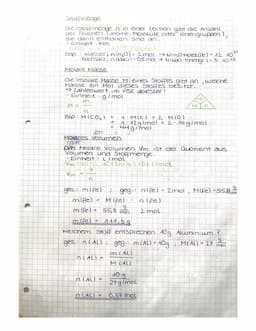 Stoffmenge
Die Stoffmenge n in einer Portion gibt die Anzahl
der Teilchen (Atome, Moleküle oder Ionengruppen),
die darin enthalten sind an.
- Einheit: Mol
Molare Masse
Die Molare Masse M eines Stoffes gibt an, welche
Masse ein Mol dieses Stoffes besitzt.
- Einheit: g/mol
M = m
n
Bsp: M(CO₂) = 1 · M(C) + 2 · M(O)
= 44 g/mol
Molares Volumen
Das Molare Volumen Vm ist der Quotient aus
Volumen und Stoffmenge
- Einheit: L/mol
Vm = V
n
ges: m(Fe) ; geg: n(Fe) = 2mol, M(Fe) = 55,8 g/mol
m(Fe) = M(Fe) · n(Fe)
m(Fe) = 55,8 g/mol · 2mol
m(Fe) = 111,6g
Welchem Stoff entsprechen 10g Aluminium?
ges: n(Al), geg: m(Al) = 10g, M(Al) = 27 g/mol
n(Al) = m(Al)
M(Al)
n(Al) = 10g
27g/mol
n(Al) = 0,37mol